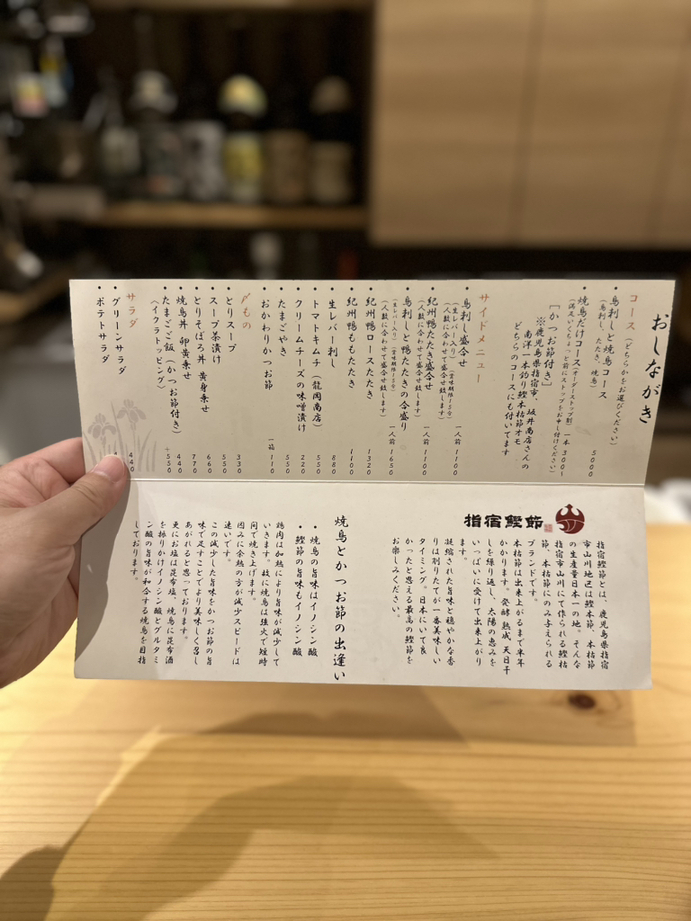 おしながき
コース（どちらかをお選びください）
・鳥刺しと焼鳥コース 5000
（鳥刺し、たたき、焼鳥）
・焼鳥だけコース（オーダーストップ制）一本 300〜
（満足いくちょっと前にストップをお申し付けください）
［かつお節付き］
※鹿児島県指宿市、坂井商店さんの
南洋一本釣り鰹本枯節オモ
どちらのコースにも付いてます
サイドメニュー
・鳥刺し盛合せ 一人前 1100
（生レバー入り）（賞味期限15分）
（人数に合わせて盛合せ致します）
・紀州鴨たたき盛合せ 一人前 1100
（人数に合わせて盛合せ致します）
・鳥刺しと鴨たたきの合盛り 一人前 1650
（生レバー入り）（賞味期限15分）
（人数に合わせて盛合せ致します）
・紀州鴨ロースたたき 1320
・紀州鴨ももたたき 1100
・生レバー刺し 880
・トマトキムチ（龍岡商店） 550
・クリームチーズの味噌漬け 220
・たまごやき 550
・おかわりかつお節 一箱 110
〆もの
・とりスープ 330
・スープ茶漬け 550
・とりそぼろ丼 黄身乗せ 660
・焼鳥丼 卵黄乗せ 770
・たまごご飯（かつお節付き） 440
（イクラトッピング） +550
サラダ
・グリーンサラダ 440
・ポテトサラダ
指宿鰹節
指宿鰹節とは、鹿児島県指宿
市山川地区は鰹本節、本枯節
の生産量日本一の地。そんな
指宿市山川にて作られる鰹枯
節、本枯節にのみ与えられる
ブランドです。
本枯節は出来上がるまで半年
かかります。発酵、熟成、天日干
しを繰り返し、太陽の恵みを
いっぱいに受けて出来上がり
ます。
凝縮された旨味と穏やかな香
りは削りたてが一番美味しい
タイミング。日本にいて良
かったと思える最高の鰹節を
お楽しみください。
焼鳥とかつお節の出逢い
・焼鳥の旨味はイノシン酸
・鰹節の旨味もイノシン酸
鶏肉は加熱により旨味が減少して
いきます。故に焼鳥は強火で短時
間で焼き上げます。
因みに余熱の方が減少スピードは
速いです。
この減少した旨味をかつお節の旨
味で足すことでより美味しく召し
あがれると思っております。
更にお塩は昆布塩、焼鳥に昆布酒
を振りかけイノシン酸とグルタミ
ン酸の旨味が和合する焼鳥を目指
しております。